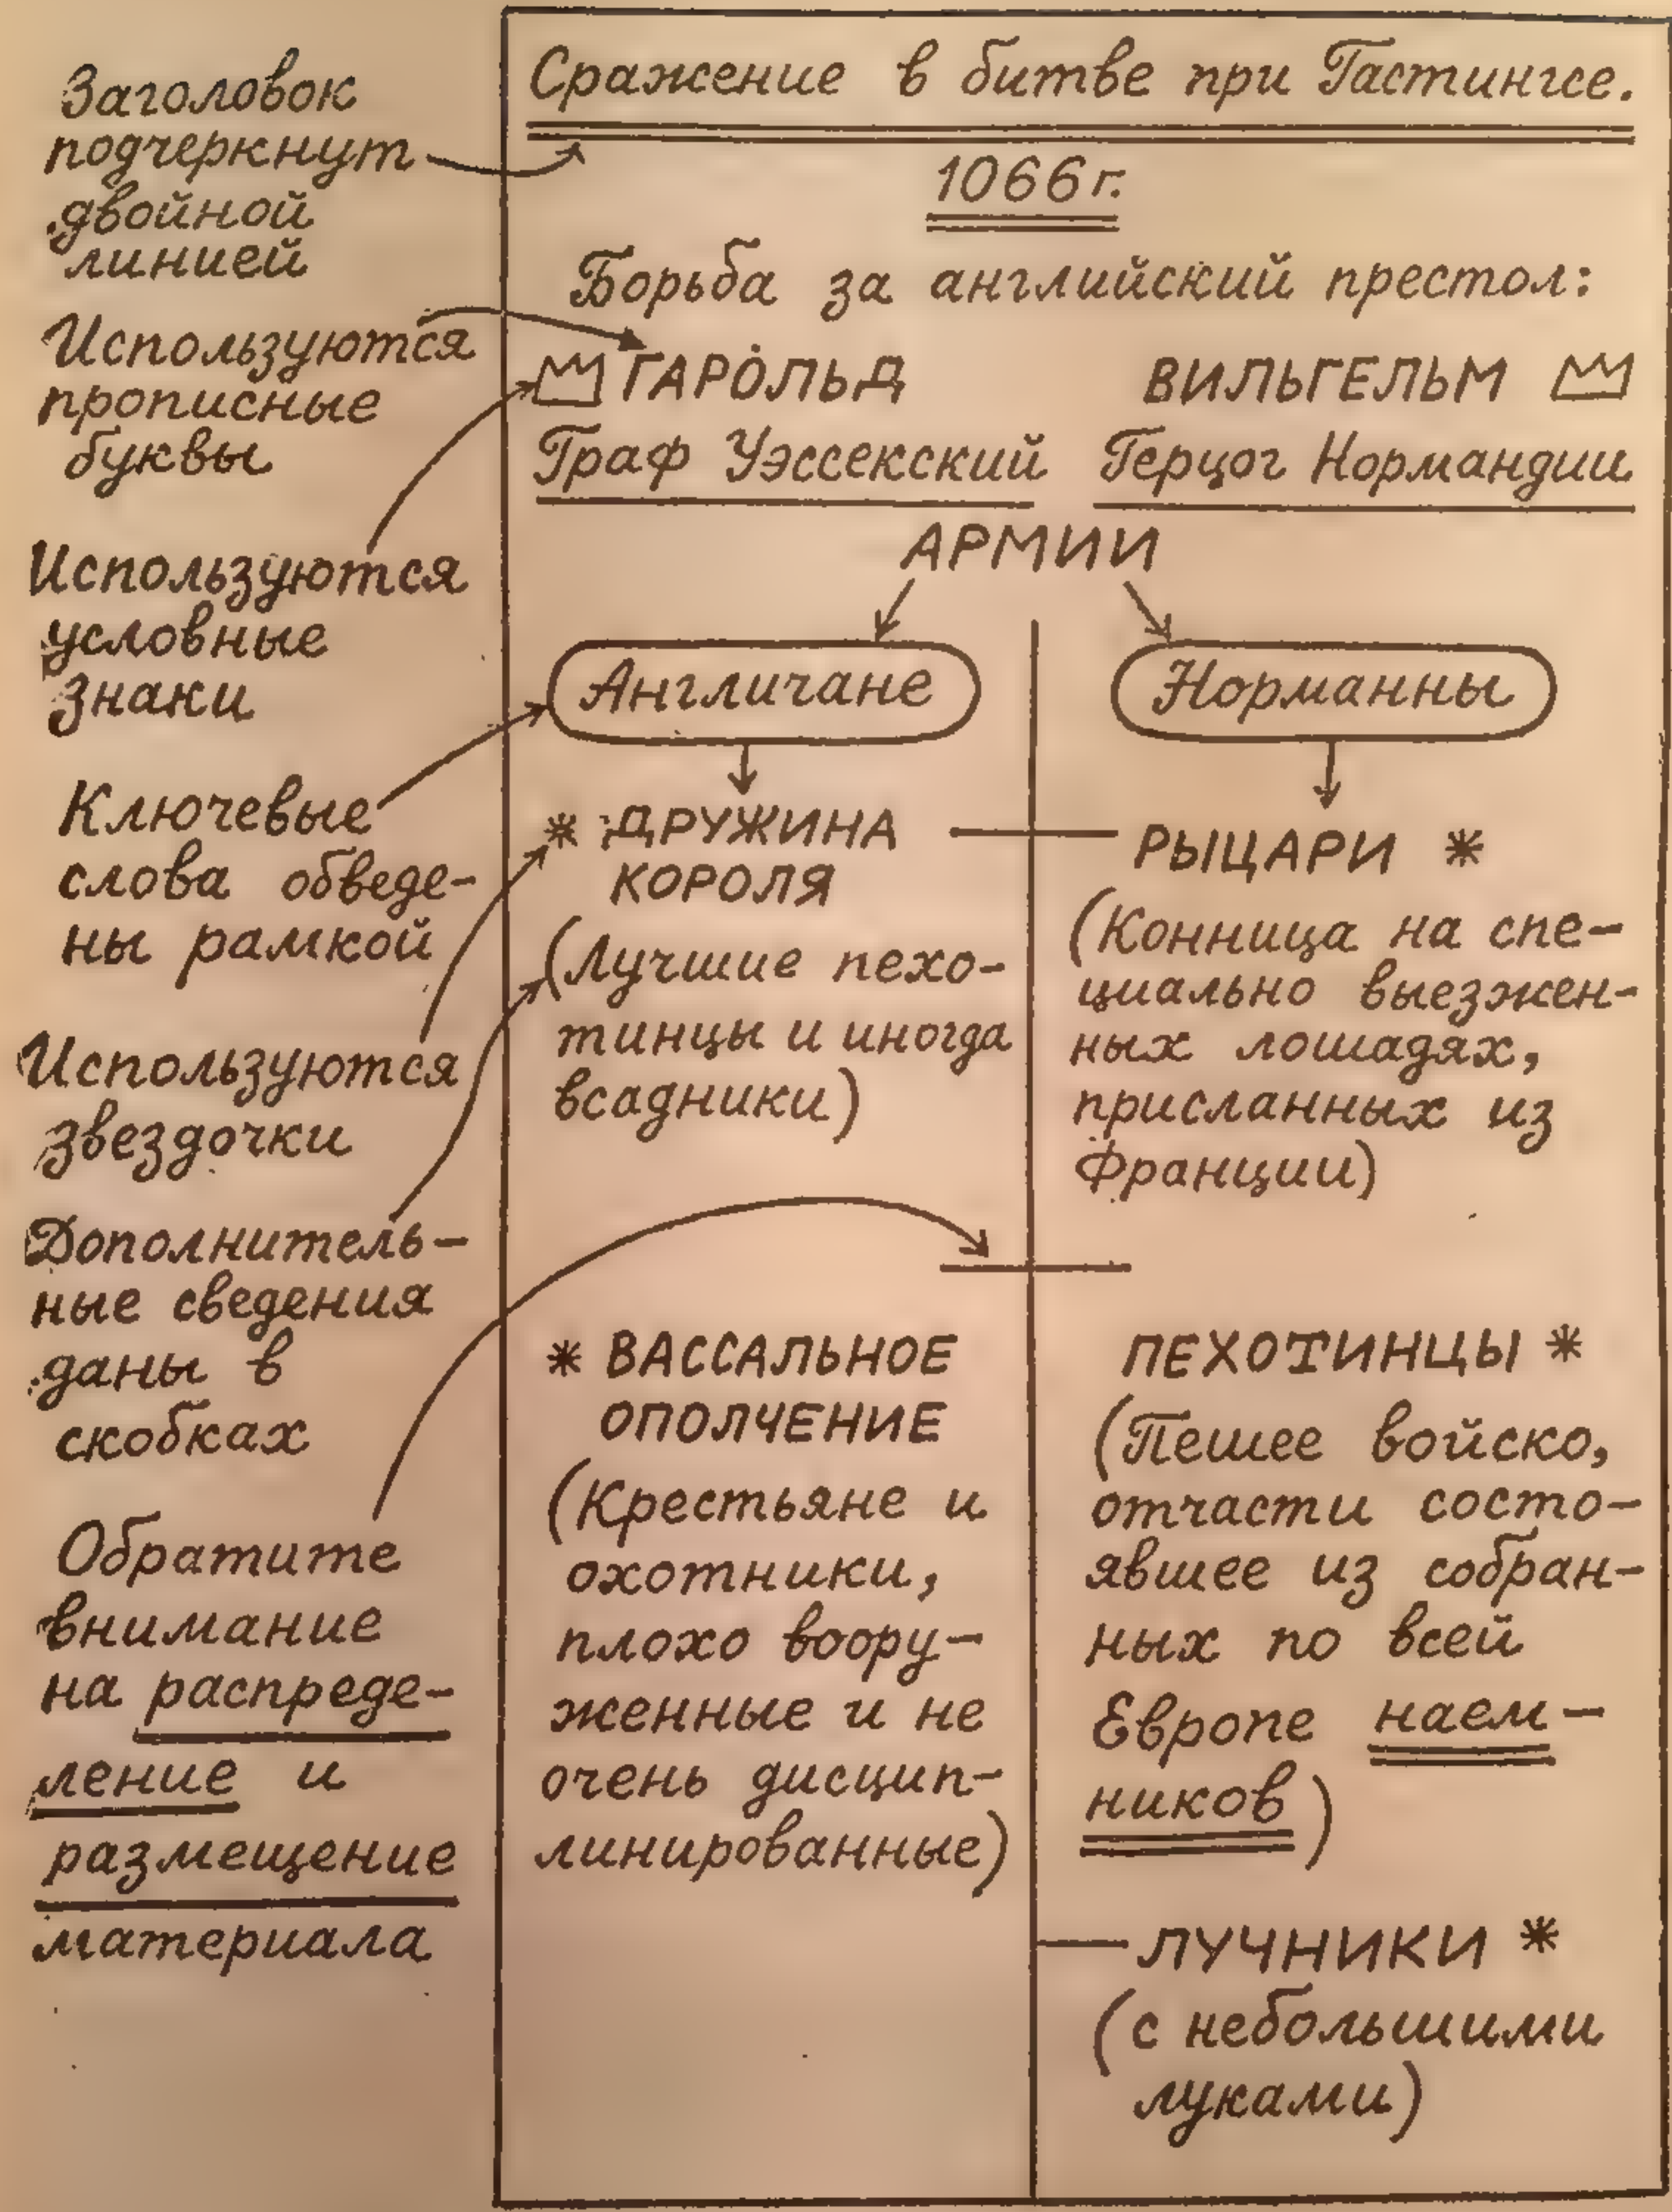 Заголовок
подчеркнут
двойной
линией
Используются
прописные
буквы
Используются
условные
знаки
Ключевые
слова обведе-
ны рамкой
Используются
звездочки
Дополнитель-
ные сведения
даны в
скобках
Обратите
внимание
на распреде-
ление и
размещение
материала
Сражение в битве при Гастингсе.
1066 г.
Борьба за английский престол:
ГАРОЛЬД ВИЛЬГЕЛЬМ
Граф Уэссекский Герцог Нормандии
АРМИИ
Англичане
* ДРУЖИНА
КОРОЛЯ
(Лучшие пехо-
тинцы и иногда
всадники)
* ВАССАЛЬНОЕ
ОПОЛЧЕНИЕ
(Крестьяне и
охотники,
плохо воору-
женные и не
очень дисцип-
линированные)
Норманны
РЫЦАРИ *
(Конница на спе-
циально выезжен-
ных лошадях,
присланных из
Франции)
ПЕХОТИНЦЫ *
(Пешее войско,
отчасти состо-
явшее из собран-
ных по всей
Европе наем-
ников)
ЛУЧНИКИ *
(с небольшими
луками)